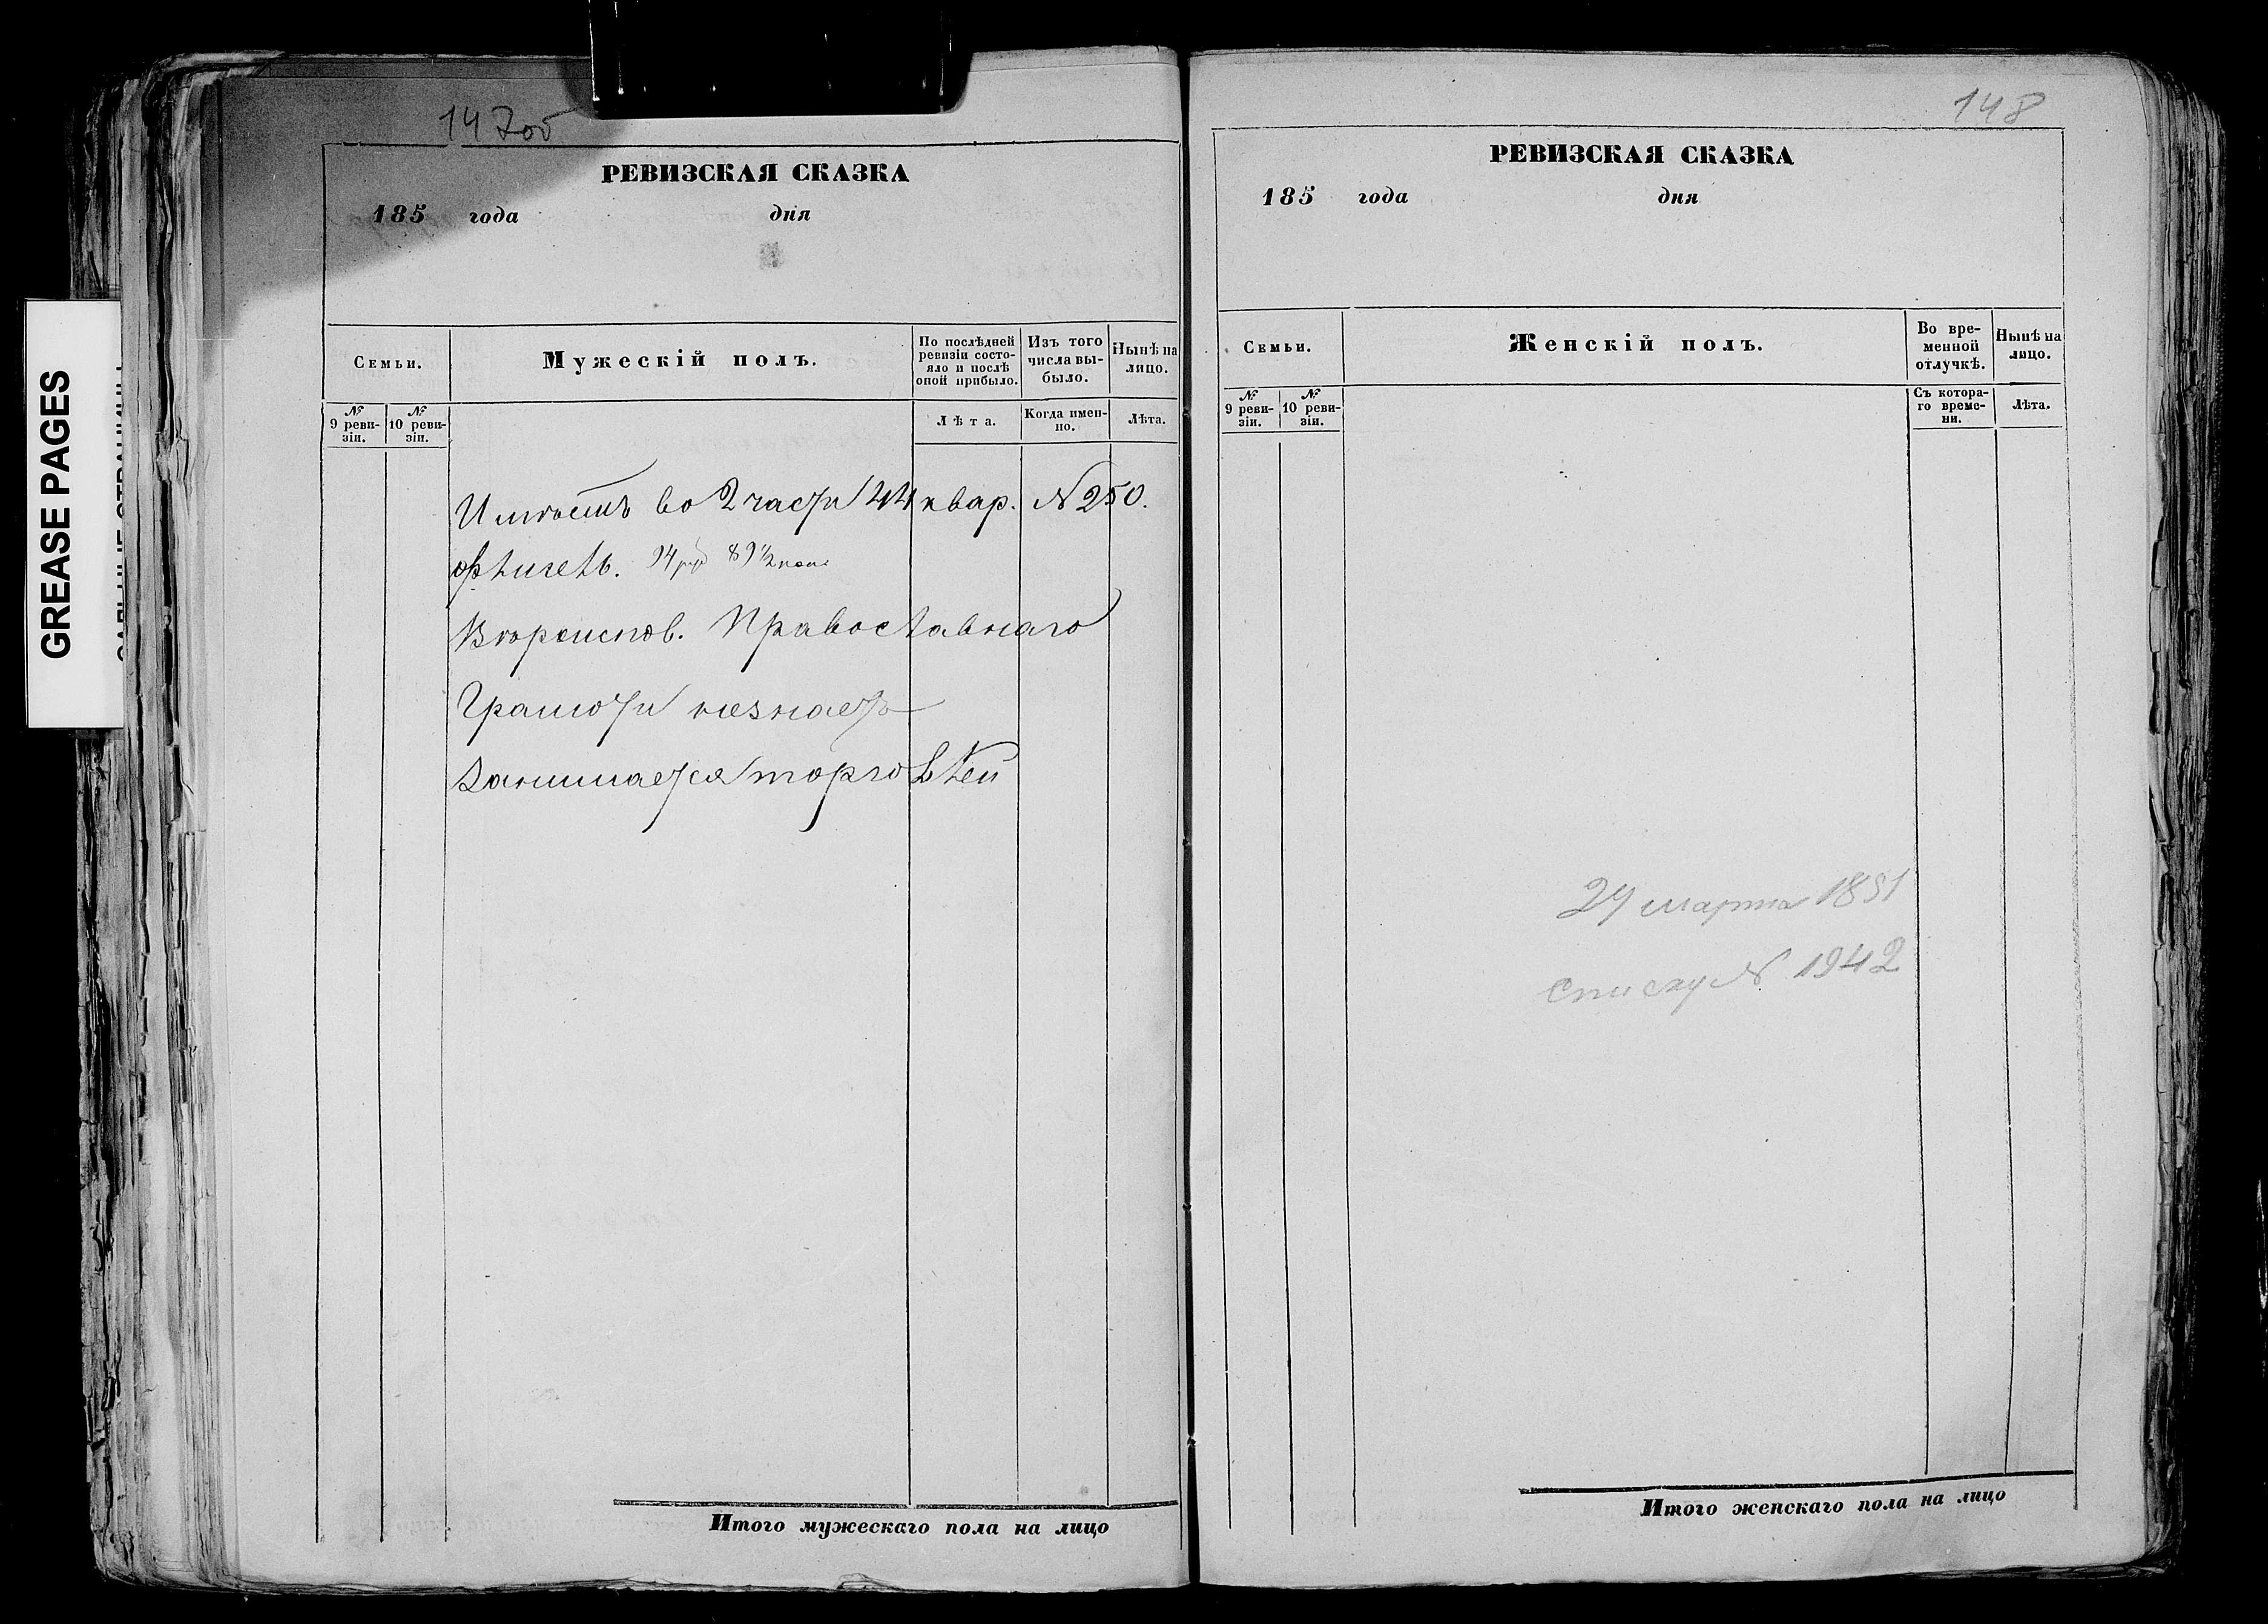 147об
РЕВИЗСКАЯ СКАЗКА
185 года дня
Семьи.
Мужескій полъ.
По послѣдней ревизіи состо-
яло и послѣ оной прибыло.
Изъ того числа вы-
было.
Нынѣ на лицо.
№ 9 реви-
зіи.
№ 10 реви-
зіи.
Лѣта.
Когда имен-
но.
Лѣта.
Имѣетъ во 2 части 44 квар. № 250.
флигель. 94 руб 89 1/2 коп.
Вѣроиспов. Православнаго
Грамоти незнаетъ
Занимается торговлей
Итого мужескаго пола на лицо
148
РЕВИЗСКАЯ СКАЗКА
185 года дня
Семьи.
Женскій полъ.
Во вре-
менной
отлучкѣ.
Нынѣ на
лицо.
№ 9 реви-
зіи.
№ 10 реви-
зіи.
Съ котора-
го време-
ни.
Лѣта.
марта 1851
списку № 1942
Итого женскаго пола на лицо
GREASE PAGES